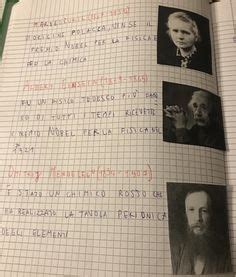 MARIE CURIE (1867-1934)
D'ORIGINE POLACCA, VINSE IL
PREMIO NOBEL PER LA FISICA E
PER LA CHIMICA
ALBERT EINSTEIN (1879-
FU UN FISICO TEDESCO PIÙ
DI TUTTI I TEMPI RICEVETTE
PREMIO NOBEL PER LA FISICA NEL
1921
DMITRIJ MENDELEEV (1834-
È STATO UN CHIMICO RUSSO CHE
HA REALIZZATO LA TAVOLA PERIODICA
DEGLI ELEMENTI